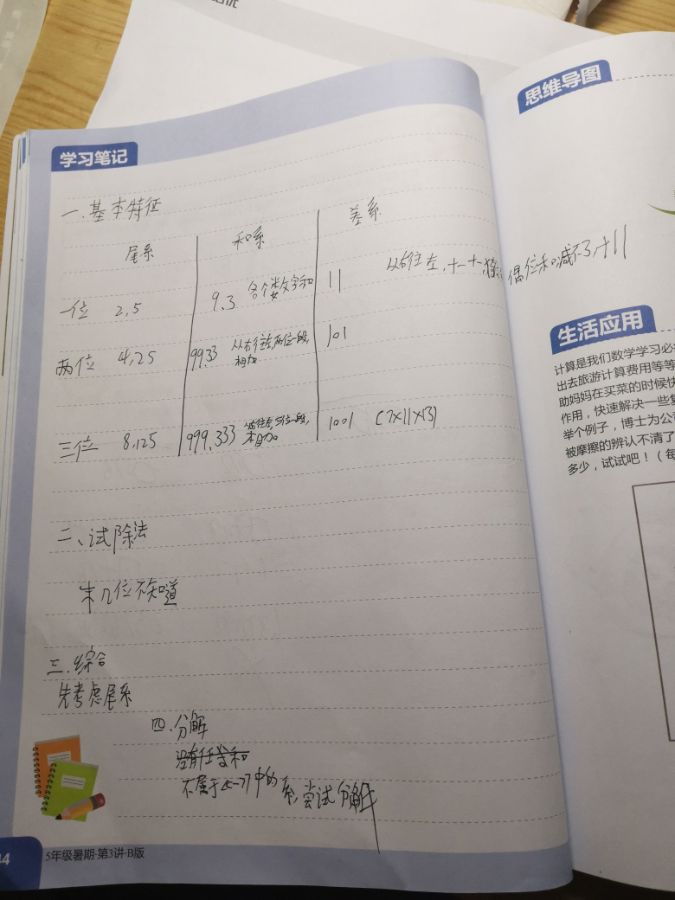 学习笔记
一.基本特征
尾系 和系 差系
一位 2,5 9.3 各个数字和 11 从右往左,十一十一 偶位和减不了,十11
两位 4,25 99.33 从右往左,两位一段,相加 101
三位 8,125 999.333 三位一段,相加 1001 (7×11×13)
二、试除法
末几位不知道
三.综合
先考虑尾系
四.分解
不属于 中的系,尝试分解
5年级暑期·第3讲·B版
思维导图
生活应用
计算是我们数学学习必
出去旅游计算费用等等
助妈妈在买菜的时候快
作用,快速解决一些
举个例子,博士为公
被摩擦的辨认不清了
多少,试试吧!(每